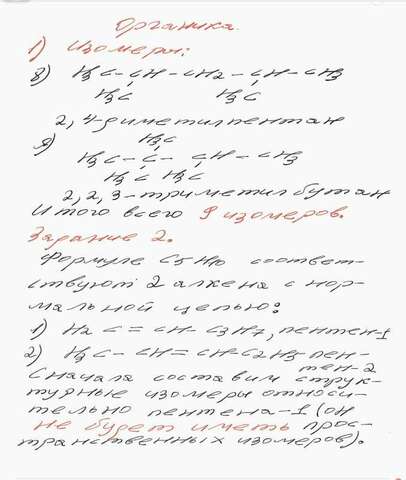 Органика.
1) Изомеры:
8) H3C-CH-CH2-CH-CH3
H3C H3C
2,4-диметилпентан
H3C
9) H3C-C- CH-CH3
H3C H3C
2,2,3-триметилбутан
Итого всего 9 изомеров.
Задание 2.
Формуле C5H10 соответ-
ствуют 2 алкена с нор-
мальной цепью:
1) H2C=CH-C3H7, пентен-1
2) H3C-CH=CH-C2H5 пен-
тен-2
Сначала составим струк-
турные изомеры относи-
тельно пентена-1 (он
не будет иметь прос-
транственных изомеров).